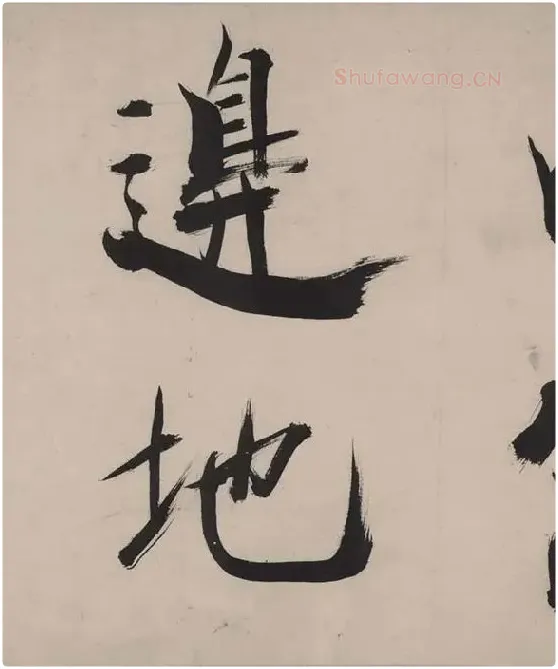 Shufawang.CN
邊
地